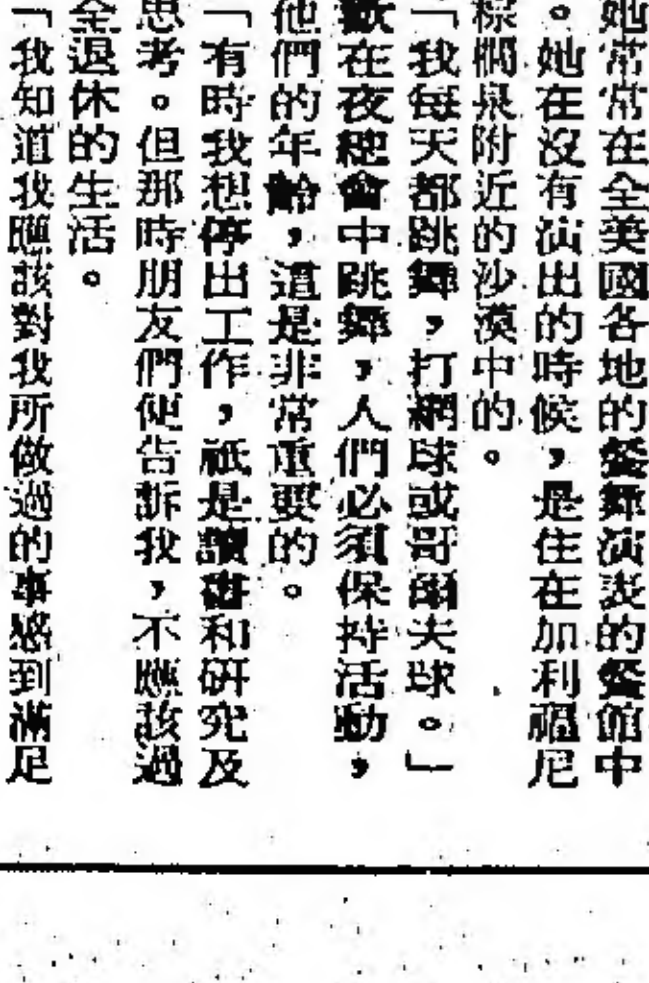 她常常在全美國各地的餐舞演表的餐館中
。她在沒有演出的時候，是住在加利福尼
棕櫚泉附近的沙漠中的。
「我每天都跳舞，打網球或哥爾夫球。」
歡在夜總會中跳舞，人們必須保持活動，
他們的年齡，這是非常重要的。
「有時我想停出工作，祇是讀書和研究及
思考。但那時朋友們便告訴我，不應該過
全退休的生活。
「我知道我應該對我所做過的事感到滿足